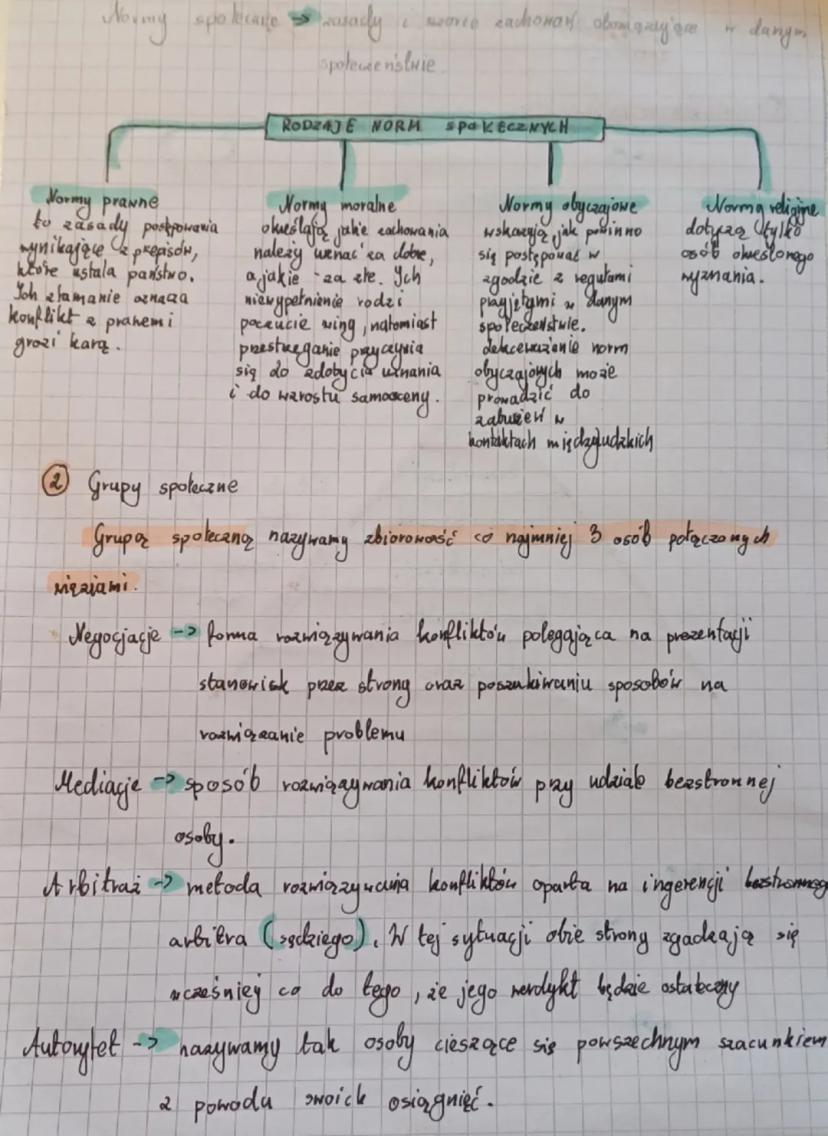 Normy społeczne → zasady i wzorce zachowań obowiązujące w danym
społeczeństwie.
RODZAJE NORM SPOŁECZNYCH
Normy prawne
to zasady postępowania
wynikające z przepisów,
które ustala państwo.
Ich złamanie oznacza
konflikt z prawem i
grozi karą.
Normy moralne
określają jakie zachowania
należy uznać za dobre,
a jakie - za złe. Ich
niewypełnienie rodzi
poczucie winy, natomiast
przestrzeganie przyczynia
się do zdobycia uznania
i do wzrostu samooceny.
Normy obyczajowe
wskazują jak powinno
się postępować w
zgodzie z regułami
przyjętymi w danym
społeczeństwie.
Lekceważenie norm
obyczajowych może
prowadzić do
zaburzeń w
kontaktach międzyludzkich
Normy religijne
dotyczą tylko
osób określonego
wyznania.
② Grupy społeczne
Grupą społeczną nazywamy zbiorowość co najmniej 3 osób połączonych
więziami.
Negocjacje → forma rozwiązywania konfliktów polegająca na prezentacji
stanowisk przez strony oraz poszukiwaniu sposobów na
rozwiązanie problemu
Mediacje → sposób rozwiązywania konfliktów przy udziale bezstronnej
osoby.
Arbitraż → metoda rozwiązywania konfliktów oparta na ingerencji bezstronnego
arbitra (sędziego). W tej sytuacji obie strony zgadzają się
wcześniej co do tego, że jego werdykt będzie ostateczny
Autorytet → nazywamy tak osoby cieszące się powszechnym szacunkiem
z powodu swoich osiągnięć.